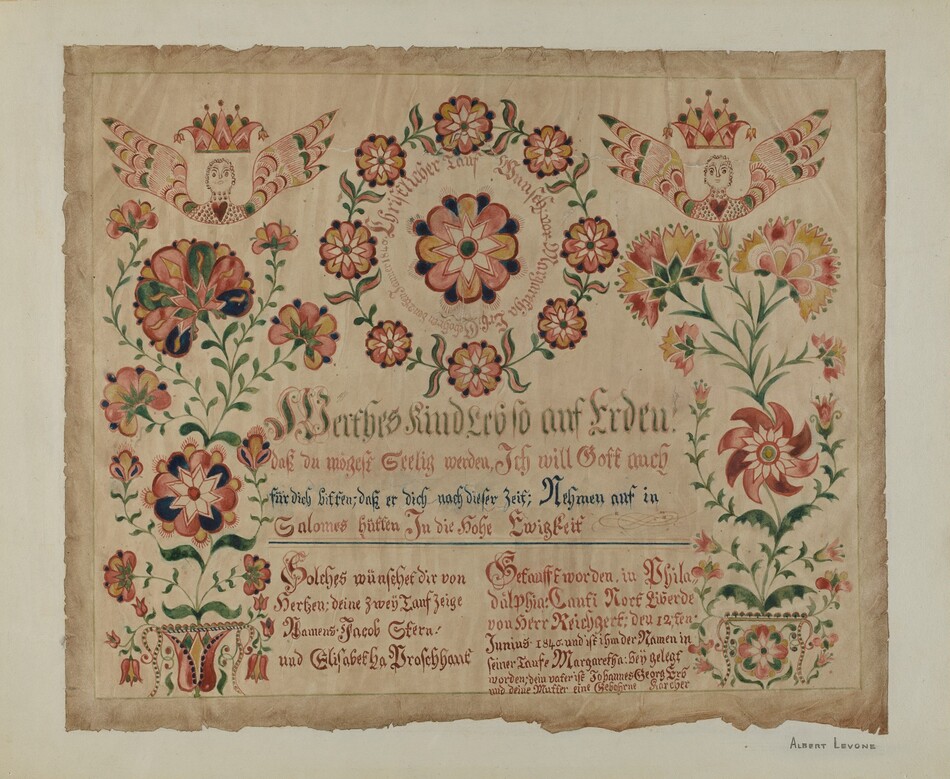 Christlicher Tauf Wunsch vor Margaretha Erb
Werthes Kind Leb so auf Erden!
daß du mögest Seelig werden, Ich will Gott auch
für dich bitten; daß er dich nach dieser Zeit; Nehmen auf in
Salomes hütten In die Hohe Ewigkeit
Solches wünschet dir von
Hertzen; deine zwey Tauf Zeige
Namens Jacob Stern!
und Elisabetha Broschhant
Getaufft worden, in Phila,
dalphia: Caufi Nort Liberde
von Herr Reichgert; den 12,ten
Junius 1840: und ist ihm der Namen in
seiner Taufe Margaretha: bey gelegt
worden; dein vater ist Johannes Georg Erb
und deine Mutter eine Gebohrne Karcher
ALBERT LEVONE